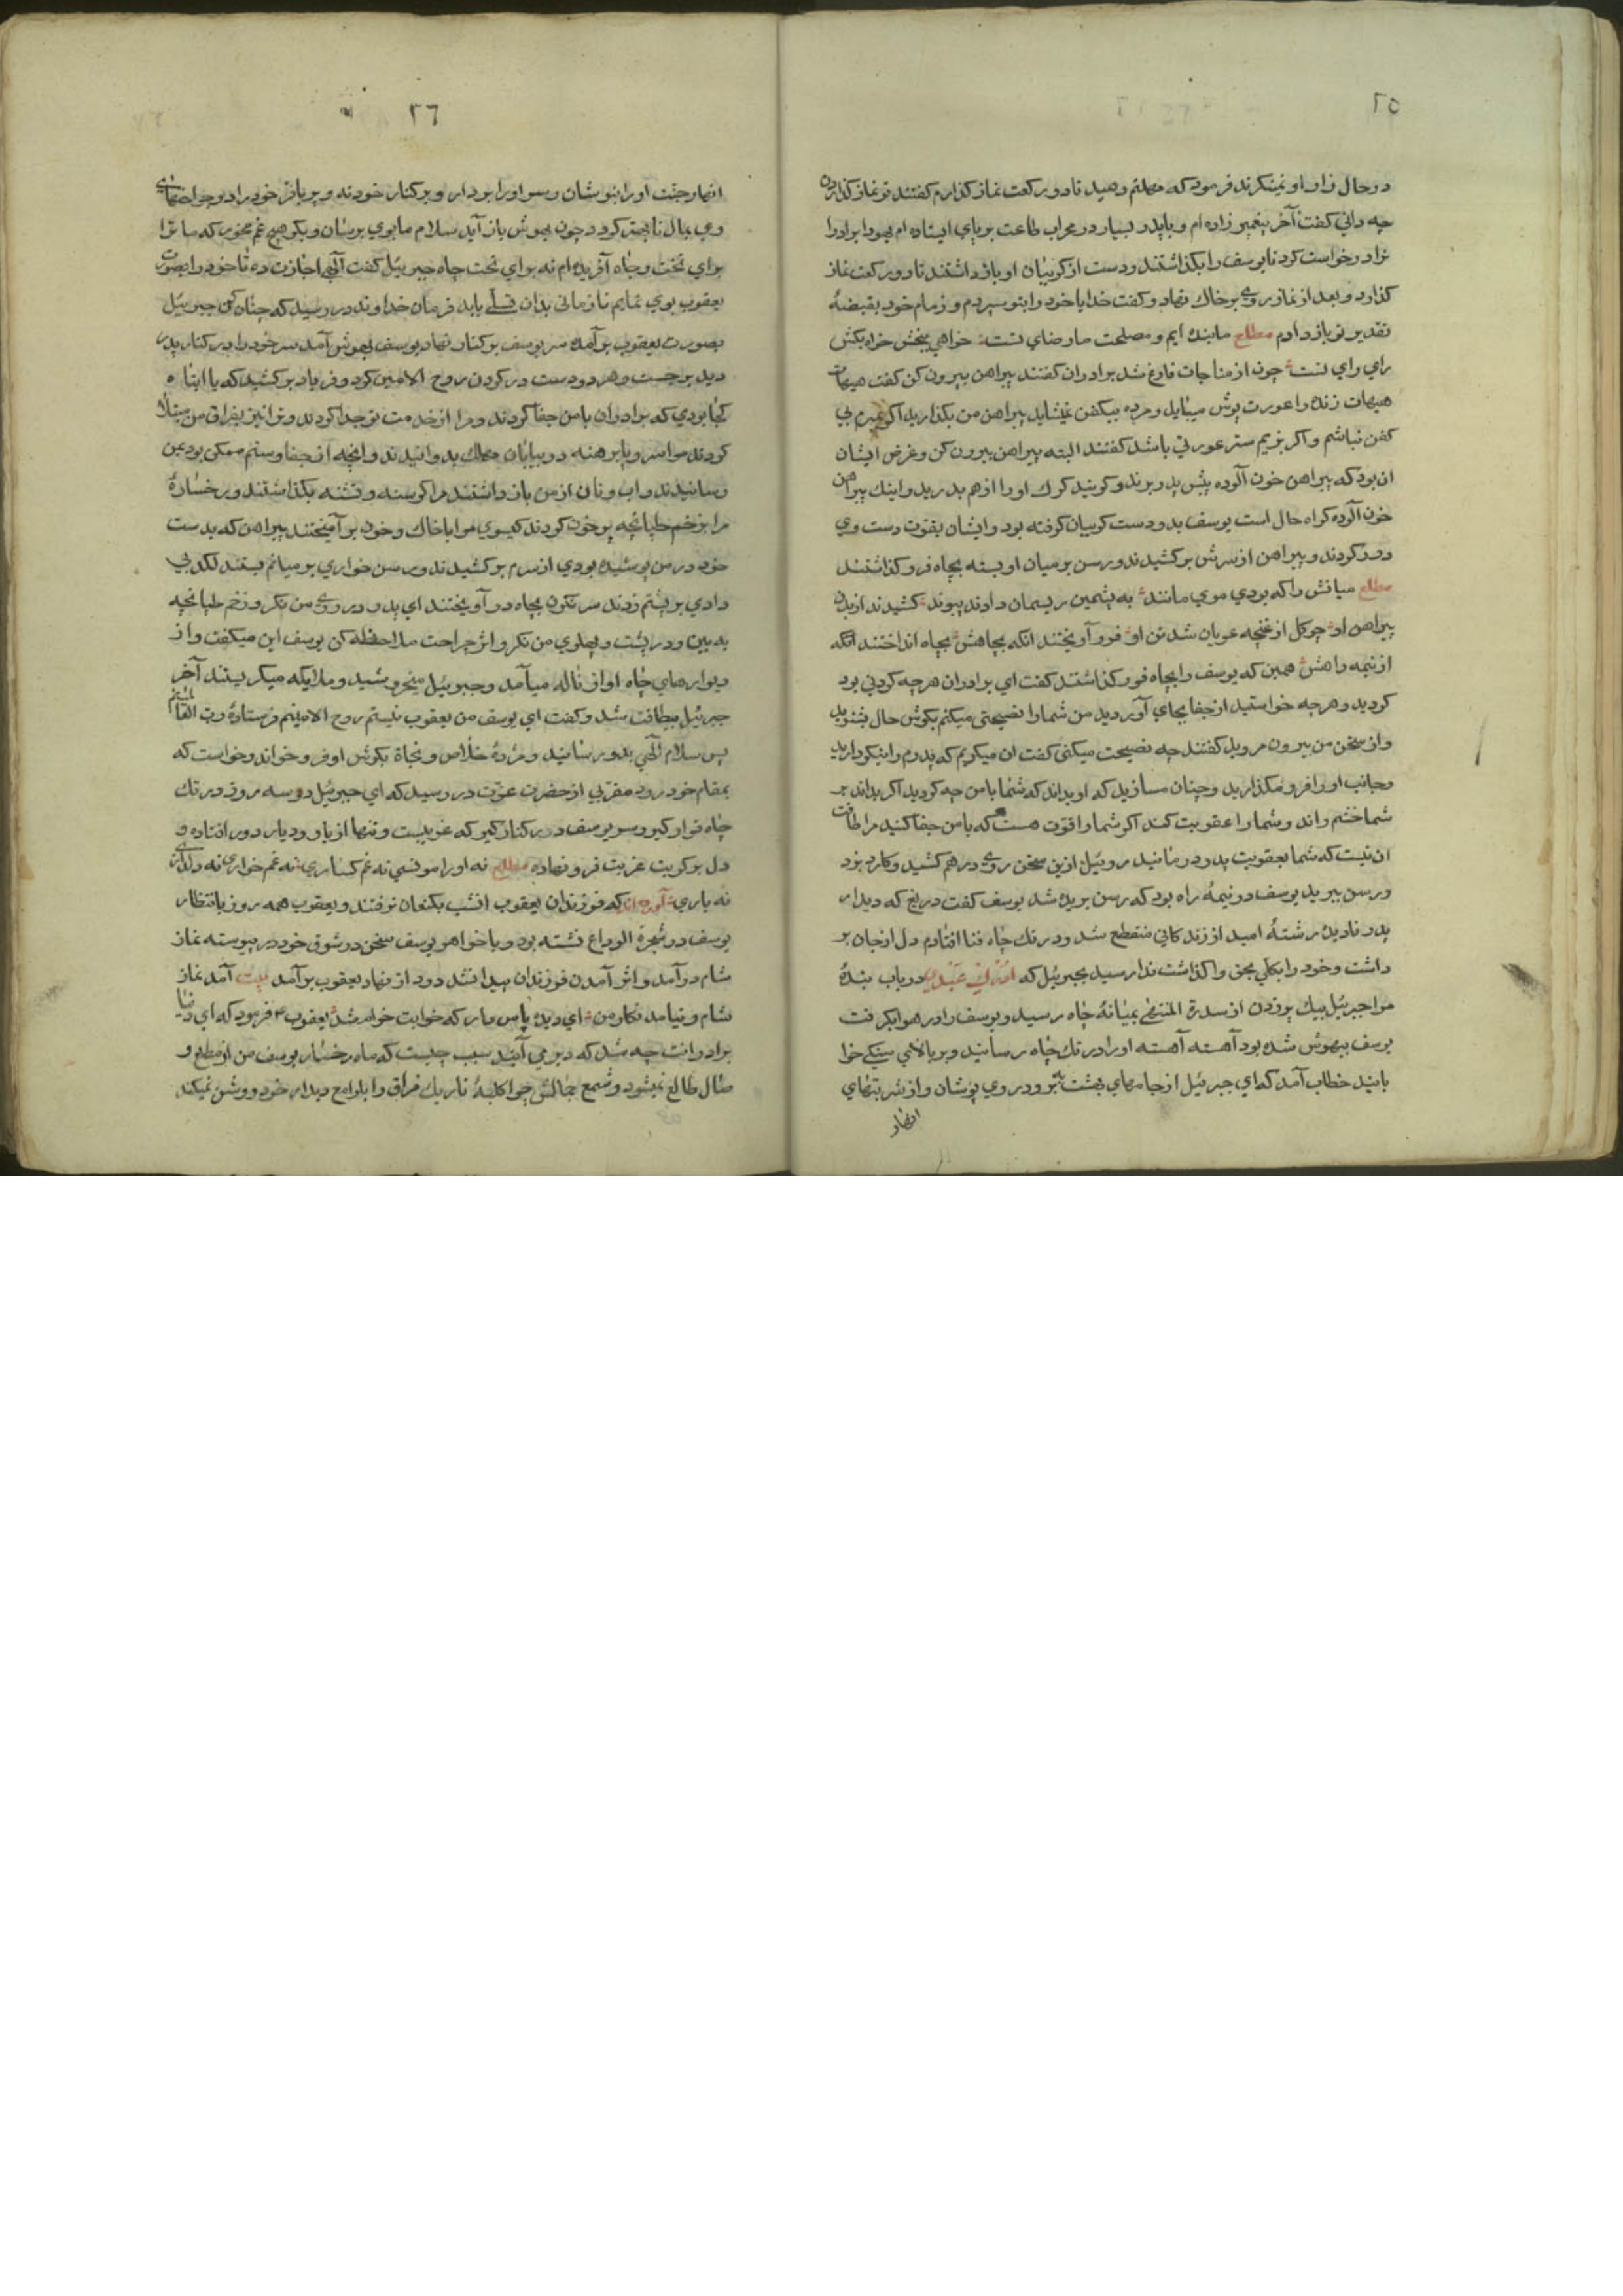 ٢٥
در حال زار او نمینکرند فرمود که مهلتم دهید تا دو رکعت نماز کذارم کفتند تو نماز کذاردن
چه دانی کفت آخر پیغمبر زاده ام و با پدر بسیار در محراب طاعت بر پای ایستاده ام یهودا برادرا
نرا درخواست کرد تا یوسف را بکذاشتند و دست از کریبان او باز داشتند تا دو رکعت نماز
کذارد و بعد از نماز روی بر خاک نهاد و کفت خدایا خود را بتو سپردم و زمام خود بقبضهٔ
تقدیر تو باز دادم مطلع ما بندهٔ ایم و مصلحت ما رضای تست خواهی ببخش خواه بکش
رای رای تست چون از مناجات فارغ شد برادران کفتند پیراهن بیرون کن کفت هیهات
هیهات زنده را عورت پوش میباید و مرده بیکفن نمیشاید پیراهن من بکذارید اکر میرم بی
کفن نباشم و اکر بزیم ستر عورتی باشد کفتند البته پیراهن بیرون کن و غرض ایشان
ان بود که پیراهن خون آلوده پیش پدر برند و کویند کرک او را از هم بدرید و اینک پیراهن
خون آلوده کواه حال است یوسف بدو دست کریبان کرفته بود و ایشان بقوت دست وی
دور کردند و پیراهن از سرش بر کشیدند و رسن بر میان او بسته بچاه فرو کذاشتند
مطلع میانش را که بودی موی مانند به پشمین ریسمان دادند پیوند کشیدند از بدن
پیراهن او چو کل از غنچه عریان شد تن او فرو آویختند انکه بچاهش بچاه انداختند انکه
از نیمه راهش همین که یوسف را بچاه فرو کذاشتند کفت ای برادران هر چه کردنی بود
کردید و هر چه خواستید از جفا بجای آوردید من شما را نصیحتی میکنم بکوش حال بشنوید
و از سخن من بیرون مروید کفتند چه نصیحت میکنی کفت ان میکویم که پدرم را نیکو دارید
و جانب او را فرو مکذارید و چنان مسازید که او بداند که شما با من چه کردید اکر بداند بر
شما خشم راند و شما را عقوبت کند اکر شما را قوت هست که با من جفا کنید مرا طاقت
ان نیست که شما بعقوبت پدر درمانید روئیل ازین سخن روی در هم کشید و کارد بزد
و رسن ببرید یوسف در نیمهٔ راه بود که رسن بریده شد یوسف کفت دریغ که دیدار
پدر نادیده رشتهٔ امید از زندکانی منقطع شد و در تک چاه فنا افتادم دل از جان بر
داشت و خود را بکلی بحق واکذاشت ندا رسید بجبرئیل که ادرک عبدی دریاب بندهٔ
مرا جبرئیل بیک پر زدن از سدرة المنتهی بمیانهٔ چاه رسید و یوسف را در هوا بکرفت
یوسف بیهوش شده بود آهسته آهسته او را در تک چاه رسانید و بر بالای سنکی خوا
بانید خطاب آمد که ای جبرئیل از جامهای بهشت ببر و در وی پوشان و از شربتهای
انهار
٢٦
انهار جنت او را بنوشان و سر او را بردار و بر کنار خود نه و پر باز خود را در جراحتهای
وی بمال تا بهتر کردد چون بهوش باز آید سلام ما بوی برسان و بکو هیچ غم مخور که ما ترا
برای تخت و جاه آفریده ام نه برای تحت چاه جبرئیل کفت آلهی اجازت ده تا خود را بصورت
یعقوب بوی نمایم تا زمانی بدان تسلی یابد فرمان خداوند در رسید که چنان کن جبرئیل
بصورت یعقوب بر آمده سر یوسف بر کنار نهاد یوسف بهوش آمد سر خود را در کنار پدر
دید بر جست و هر دو دست در کردن روح الامین کرد و فریاد بر کشید که یا ابتاه
کجا بودی که برادران با من جفا کردند و مرا از خدمت تو جدا کردند و ترا نیز بفراق من مبتلا
کردند مرا سر و پا برهنه در بیابان مهلک بدوانیدند و انچه از جفا و ستم ممکن بود بمن
رسانیدند و اب و نان از من باز داشتند مرا کرسنه و تشنه بکذاشتند و رخسارهٔ
مرا بزخم طپانچه پر خون کردند کیسوی مرا با خاک و خون بر آمیختند پیراهن که بدست
خود در من پوشیده بودی از سرم بر کشیدند و رسن خواری بر میانم بستند لکد بی
دادی بر پشتم زدند سر نکون بچاه در آویختند ای پدر در روی من نکر و زخم طپانچه
به بین و در پشت و پهلوی من نکر و اثر جراحت ملاحظه کن یوسف این میکفت و از
دیوارهای چاه اواز ناله میآمد و جبرئیل میخروشید و ملایکه میکریستند آخر
جبرئیل بیطاقت شد و کفت ای یوسف من یعقوب نیستم روح الامینم فرستادهٔ رب العالمینم
پس سلام آلهی بدو رسانید و مژدهٔ خلاص و نجاة بکوش او فرو خواند و خواست که
بمقام خود رود مقربی از حضرت عزت در رسید که ای جبرئیل دو سه روز در تک
چاه قرار کیر و سر یوسف در کنار کیر که غریبست و تنها از یار و دیار دور افتاده و
دل بر کربت غربت فرو نهاده مطلع نه او را مونسی نه غم کساری نه غم خواری نه دلداری
نه یاری آورده اند که فرزندان یعقوب انشب بکنعان نرفتند و یعقوب همه روز بانتظار
یوسف در شجرة الوداع نشسته بود و با خواهر یوسف سخن در شوق خود در پیوسته نماز
شام در آمد و اثر آمدن فرزندان پیدا نشد دود از نهاد یعقوب بر آمد بیت آمد نماز
شام و نیامد نکار من ای دیده پاس دار که خوابت حرام شد یعقوب ع فرمود که ای دنیا
برادرانت چه شد که دیر می آیند سبب چیست که ماه رخسار یوسف من از مطلع و
صال طالع نمیشود و شمع جمالش چرا کلبهٔ تاریک فراق را بلوامع دیدار خود روشن نمیکند